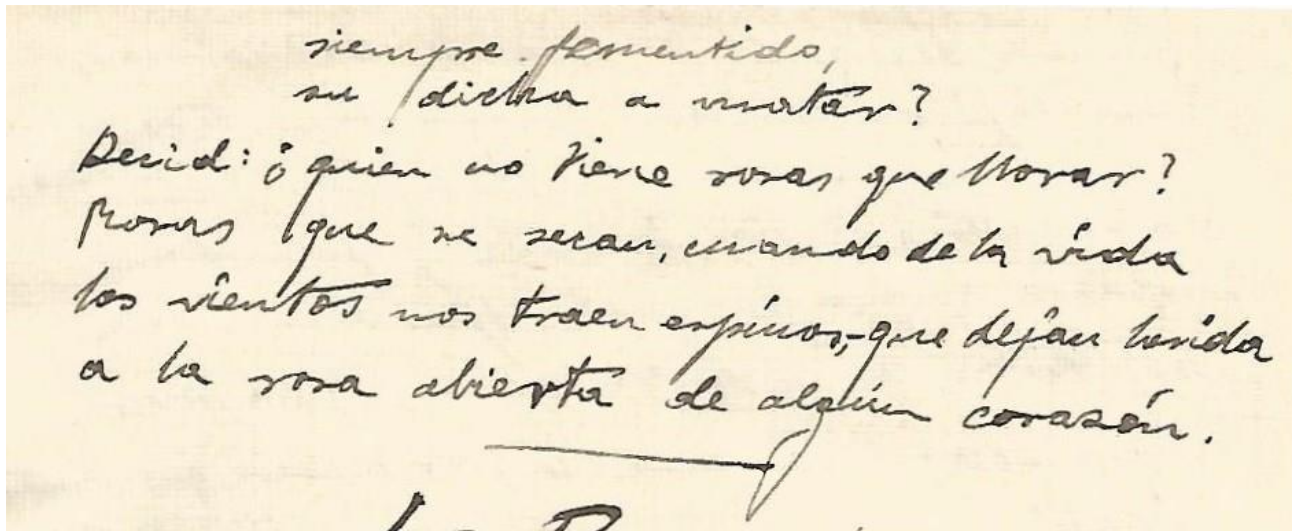 siempre fementido,
su dicha a matar?
Decid: ¿quien no tiene rosas que llorar?
Rosas que se secan, cuando de la vida
los vientos nos traen espinos,-que dejan herida
a la rosa abierta de algún corazón.